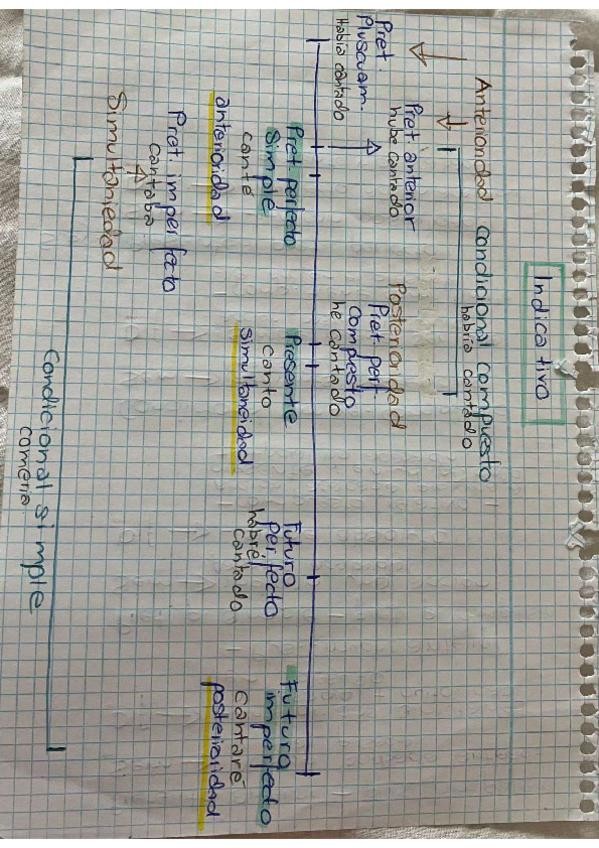 Indicativo
Anterioridad condicional compuesto
habría cantado
Posterioridad
Pret. anterior
hube cantado
Pret. perf.
compuesto
he cantado
Pret.
Pluscuam.
Había cantado
Pret perfecto
Simple
canté
anterioridad
Presente
canto
simultaneidad
Futuro
perfecto
habré
cantado
Futuro
imperfecto
cantaré
posterioridad
Pret. imperfecto
cantaba
Simultaneidad
Condicional simple
comería